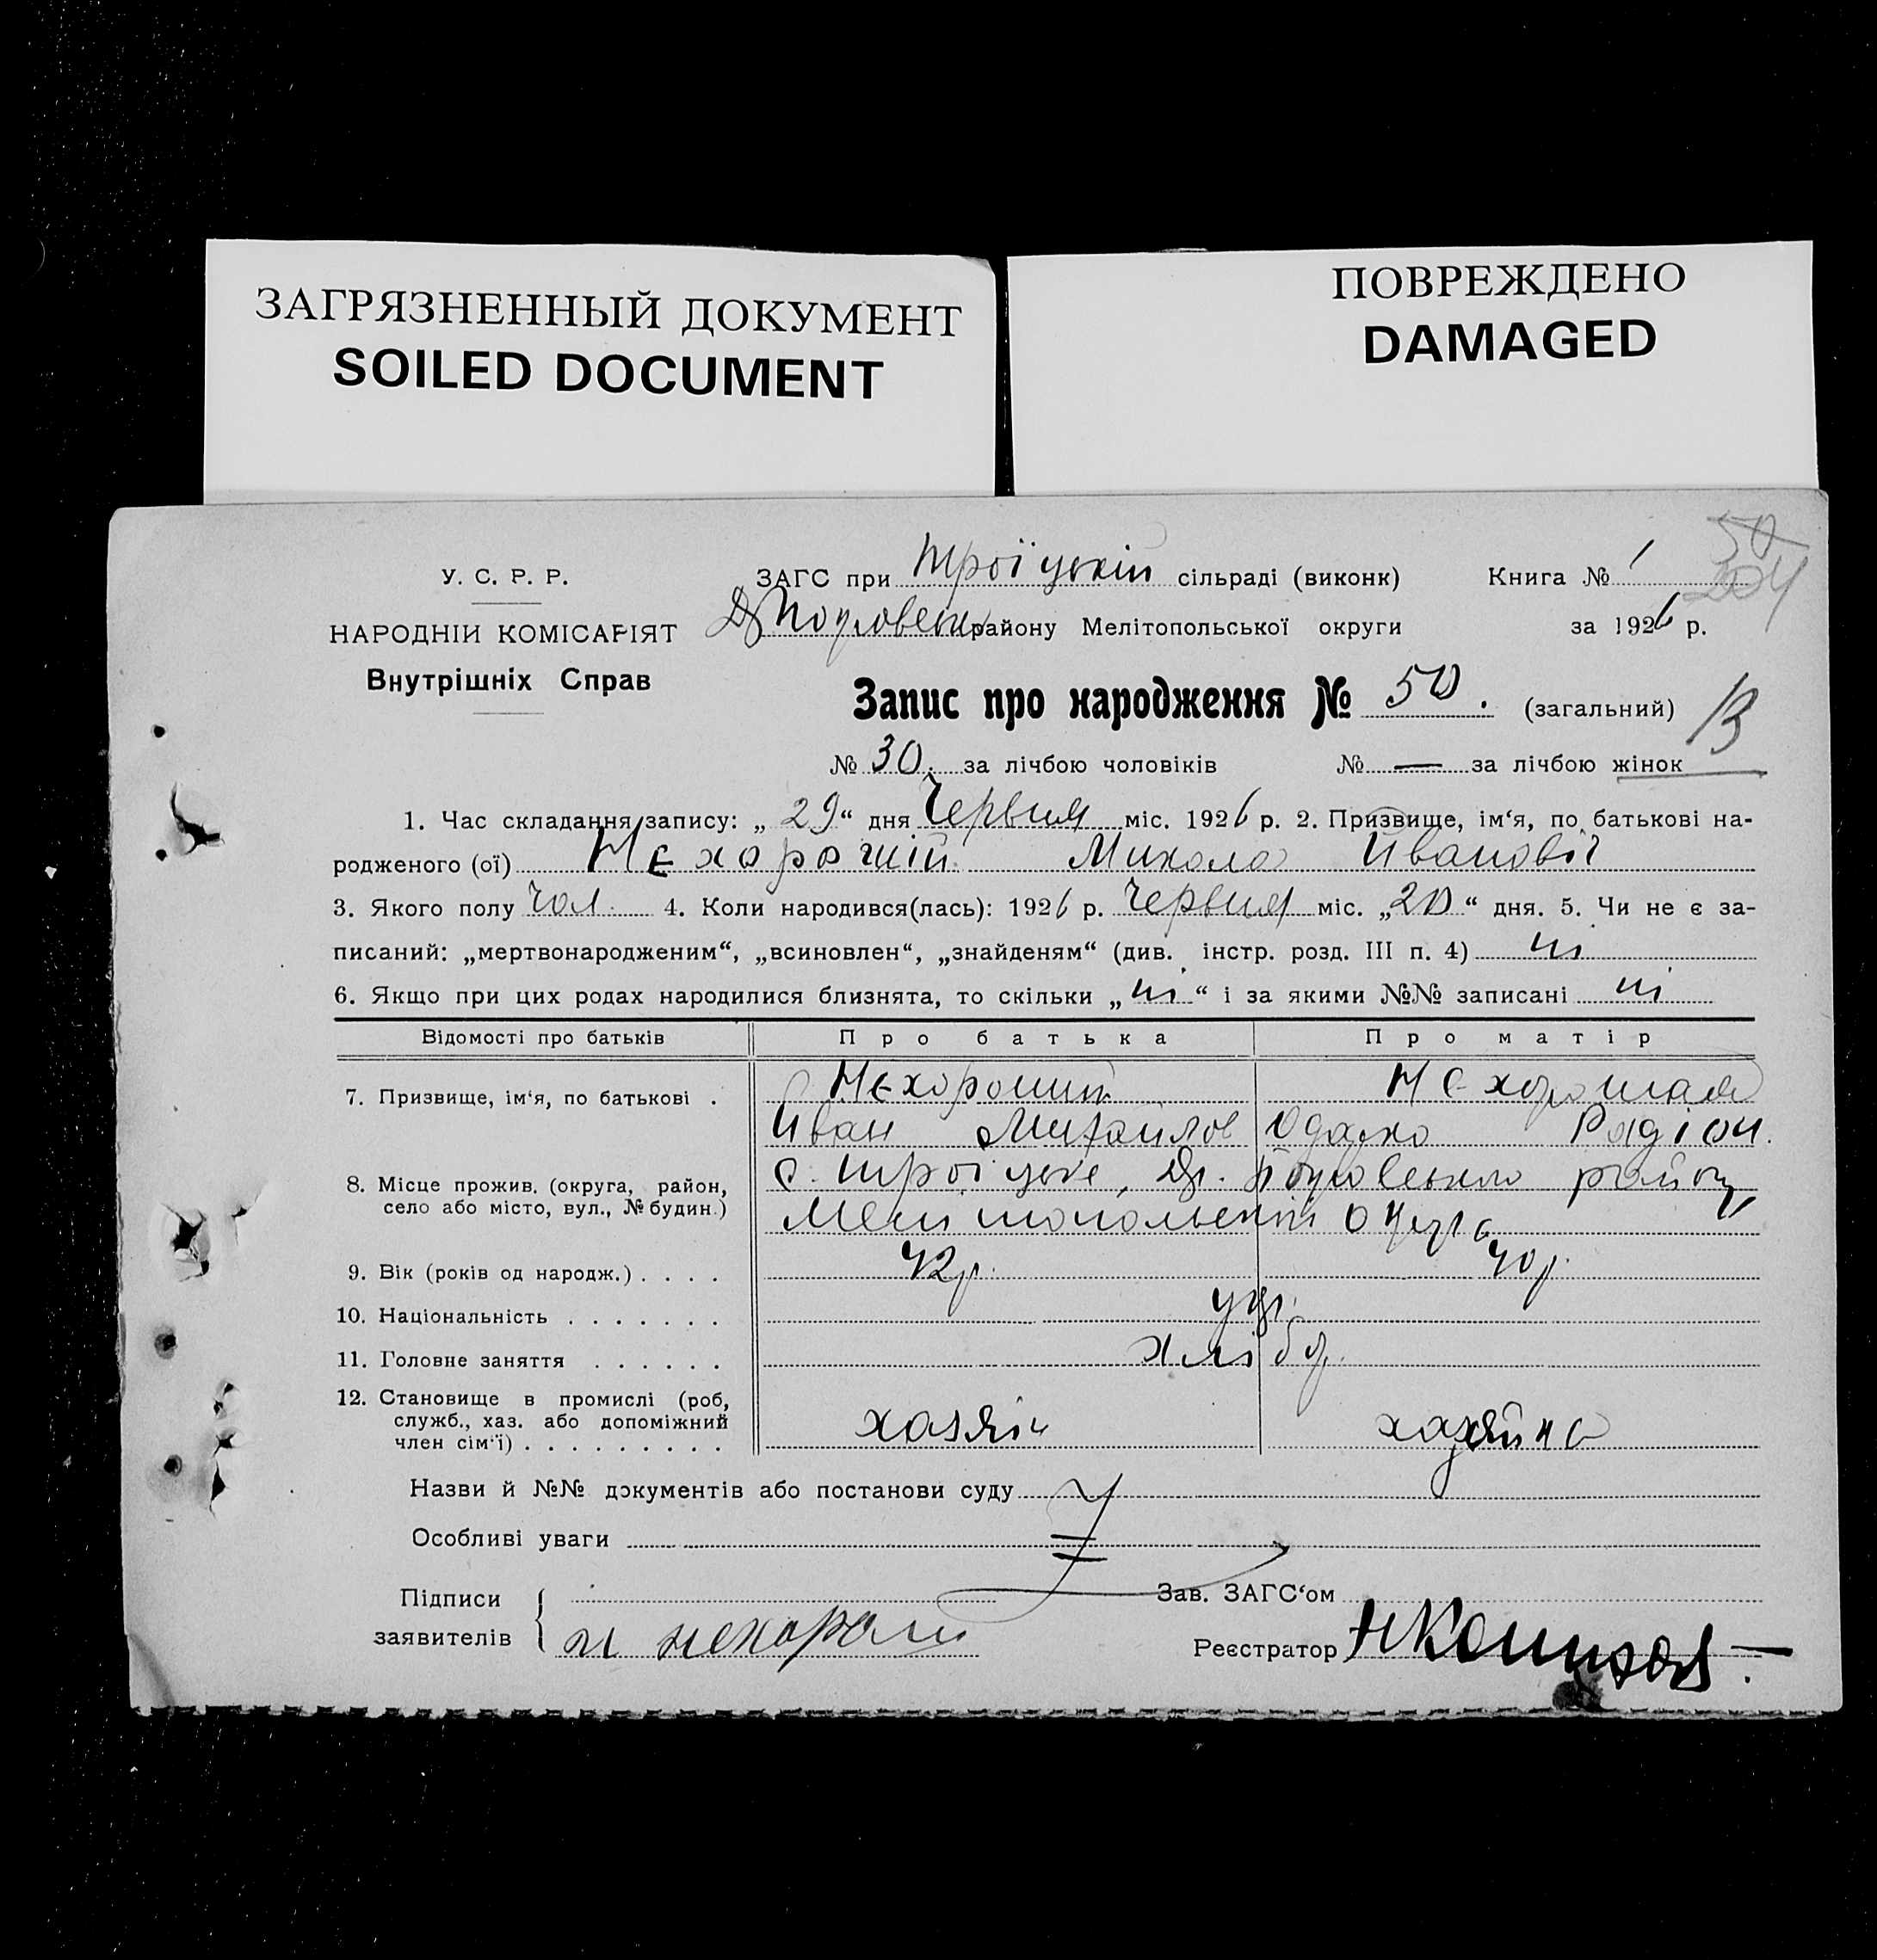 ЗАГРЯЗНЕННЫЙ ДОКУМЕНТ
SOILED DOCUMENT
ПОВРЕЖДЕНО
DAMAGED
У. С. Р. Р.
НАРОДНІИ КОМІСАРІЯТ
Внутрішніх Справ
ЗАГС при Троїцькій сільраді (виконк) Книга № 1
району Мелітопольської округи за 1926 р.
50
204
Запис про народження № 50. (загальний)
№ 30. за лічбою чоловіків № — за лічбою жінок
1. Час складання запису: „ 29 “ дня Червня міс. 1926 р. 2. Призвище, ім‘я, по батькові на-
родженого (ої) Нехороший Микола Иванович
3. Якого полу чол. 4. Коли народився(лась): 1926 р. Червня міс. „20“ дня. 5. Чи не є за-
писаний: „мертвонародженим“, „всиновлен“, „знайденям“ (див. інстр. розд. III п. 4) ні
6. Якщо при цих родах народилися близнята, то скільки „ні“ і за якими №№ записані ні
Відомості про батьків Про батька Про матір
7. Призвище, ім‘я, по батькові . Нехороший Нехорошая
Иван Михайлов Одарка Радіон.
8. Місце прожив. (округа, район, село або місто, вул., № будин.) с. Троїцьке, району
Мелитопольскій округи
9. Вік (років од народж.) . . . . 42р. 40р.
10. Національність . . . . . . . укр.
11. Головне заняття . . . . . . хлібор.
12. Становище в промислі (роб, служб., хаз. або допоміжний член сім‘ї) . . . . . . . . . хазяін хазяйка
Назви й №№ документів або постанови суду
Особливі уваги
Підписи заявителів Зав. ЗАГС‘ом
Реєстратор